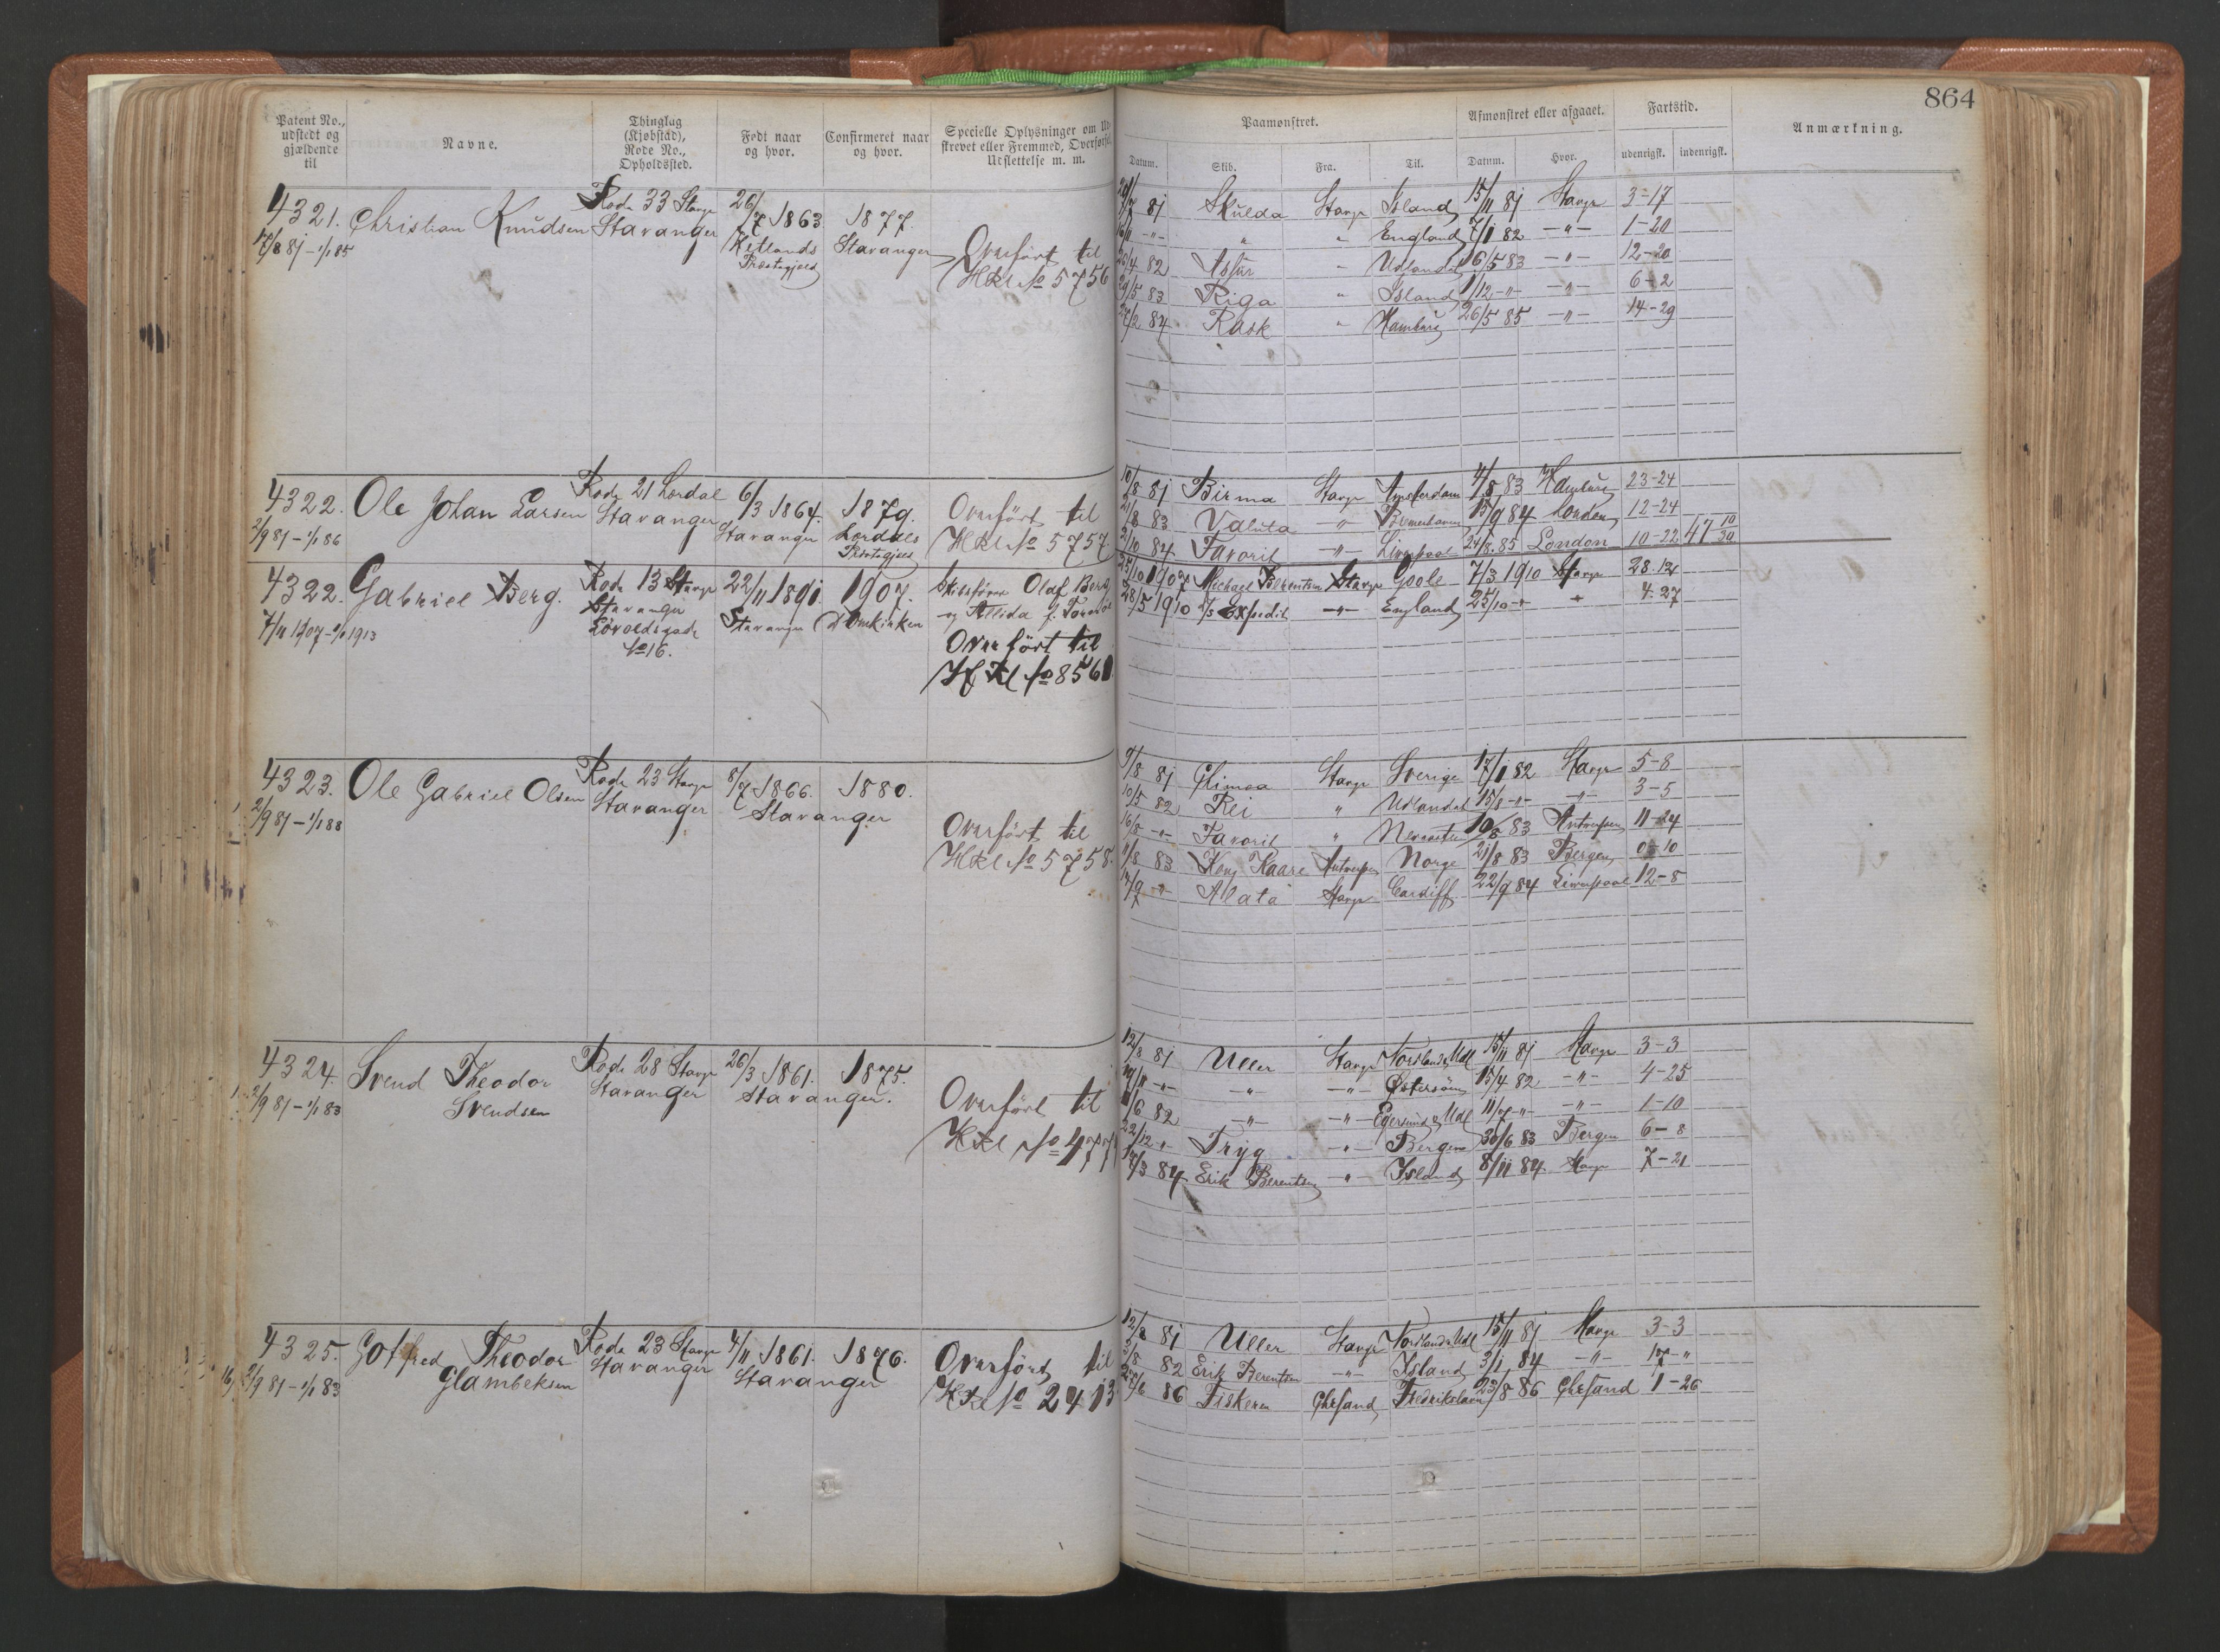 864
Patent No., udstedt og gjældende til
Navne.
Thinglag (Kjøbstad), Rode No., Opholdssted.
Født naar og hvor.
Confirmeret naar og hvor.
Specielle Oplysninger om Ud-
skrevet eller Fremmed, Overførsel,
Udslettelse m. m.
Paamønstret.
Afmønstret eller afgaaet.
Fartstid.
Anmærkning.
Datum. Skib. Fra. Til. Datum. Hvor. udenrigsk. indenrigsk.
4321. Christian Knudsen Rode 33 Stavgr 26/7 1863 1877.
17/8 81 - 1/1 85 Stavanger Hetlands Præstegjeld Stavanger
Overført til
HKl No 5756
81 Skulda Stavgr Island 15/11 81 Stavgr 3-17
" " England 7/1 82 -"- 1-20
82 Assur " Udlandet 6/5 83 -"- 12-20
29/5 83 Riga " Island 1/12 -"- -"- 6-2
84 Rask " Hamburg 26/5 85 -"- 14-29
4322. Ole Johan Larsen Rode 21 Lærdal 6/3 1864. 1879.
2/9 81 - 1/1 86 Stavanger Stavanger Lærdals Præstegjeld
Overført til
HKl No 5757
10/8 81 Birma Stavgr Amsterdam 4/8 83 Hamburg 23-24
21/8 83 Valuta -"- Bremerhaven 15/9 84 London 12-24
2/10 84 Favorit -"- Liverpool 24/8 85 London 10-22 47 10/30
4322. Gabriel Berg. Rode 13 Stavgr 22/11 1891. 1907.
7/11 1907 - 1/1 1913 Stavanger Løvoldsgade No 16. Stavanger Domkirken
Skibsfører Olaf Berg
og Allida f.
Overført til
HKl No 8561
25/10 1907 Michael Berentsen Stavgr Goole 7/3 1910 Stavgr 28.12
28/5 1910 D/S Expedit -"- England 25/10 -"- " 4-27
4323. Ole Gabriel Olsen Rode 23 Stavgr 8/7 1866. 1880.
2/9 81 - 1/1 88 Stavanger Stavanger
Overført til
HKl No 5758.
9/8 81 Glimaa Stavgr Sverige 17/1 82 Stavgr 5-8
10/5 82 Rei " Udlandet 15/8 -"- -"- 3-5
16/8 -"- Favorit " 10/8 83 Antwerpen 11-24
11/8 83 Kong Kaare Antwerpen Norge 21/8 83 Bergen 0-10
14/9 -"- Alata Stavgr Cardiff 22/9 84 Liverpool 12-8
4324. Svend Theodor Svendsen Rode 28 Stavgr 26/3 1861. 1875.
2/9 81 - 1/1 83 Stavanger Stavanger.
Overført til
HKl No 477
12/8 81 Uller Stavgr Nordland & Udl 15/11 81 Stavgr 3-3
-"- -"- Østersøen 15/4 82 -"- 4-25
1/6 82 -"- -"- Egersund & Udl 11/7 -"- -"- 1-10
22/12 -"- Tryg -"- Bergen 30/6 83 Bergen 6-8
17/3 84 Erik Berentsen -"- Island 8/11 84. Stavgr 7-21
4325. Gotfred Theodor Glambeksen Rode 23 Stavgr 4/11 1861. 1876.
2/9 81 - 1/1 83 Stavanger Stavanger
Overført til
HKl No 2413
12/8 81 Uller Stavgr Nordland & Udl 15/11 81 Stavgr 3-3
3/8 82 Erik Berentsen -"- Island 3/1 84 -"- 17-"
86 Fiskeren Chrsand Fredrikshavn 23/8 86 Chrsand 1-26